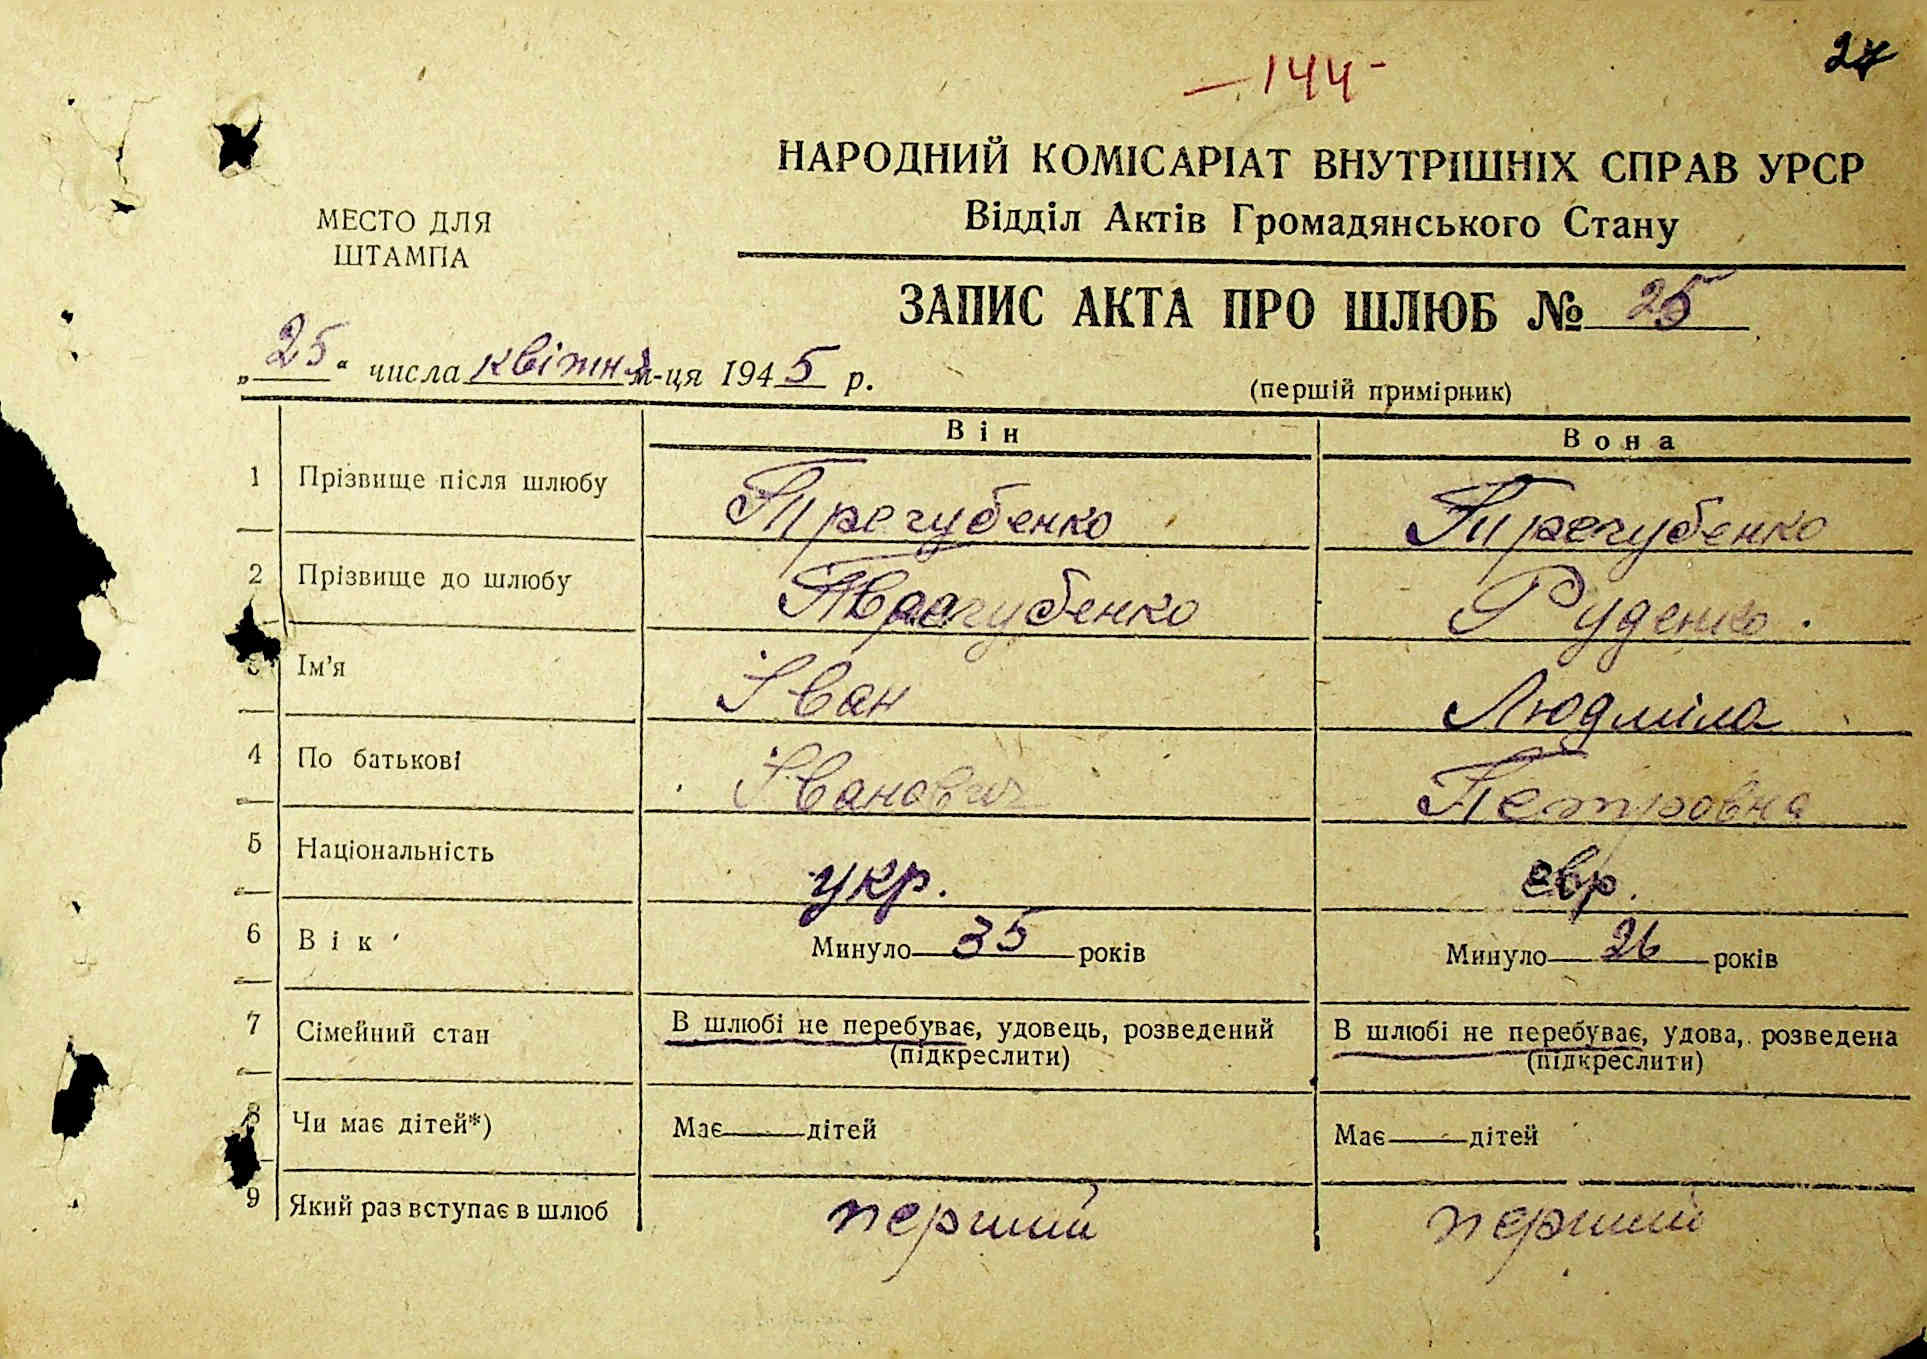 -144-
27
НАРОДНИЙ КОМІСАРІАТ ВНУТРІШНІХ СПРАВ УРСР
Відділ Актів Громадянського Стану
МЕСТО ДЛЯ
ШТАМПА
ЗАПИС АКТА ПРО ШЛЮБ № 25
„25“ числа квітня м-ця 1945 р.
(першій примірник)
Він Вона
1 Прізвище після шлюбу Трегубенко Трегубенко
2 Прізвище до шлюбу Трегубенко Руденко.
3 Ім'я Іван Людміла
4 По батькові Іванович Петровна
5 Національність укр. євр.
6 Вік Минуло 35 років Минуло 26 років
7 Сімейний стан В шлюбі не перебуває, удовець, розведений В шлюбі не перебуває, удова, розведена
(підкреслити) (підкреслити)
8 Чи має дітей*) Має — дітей Має — дітей
9 Який раз вступає в шлюб перший перший